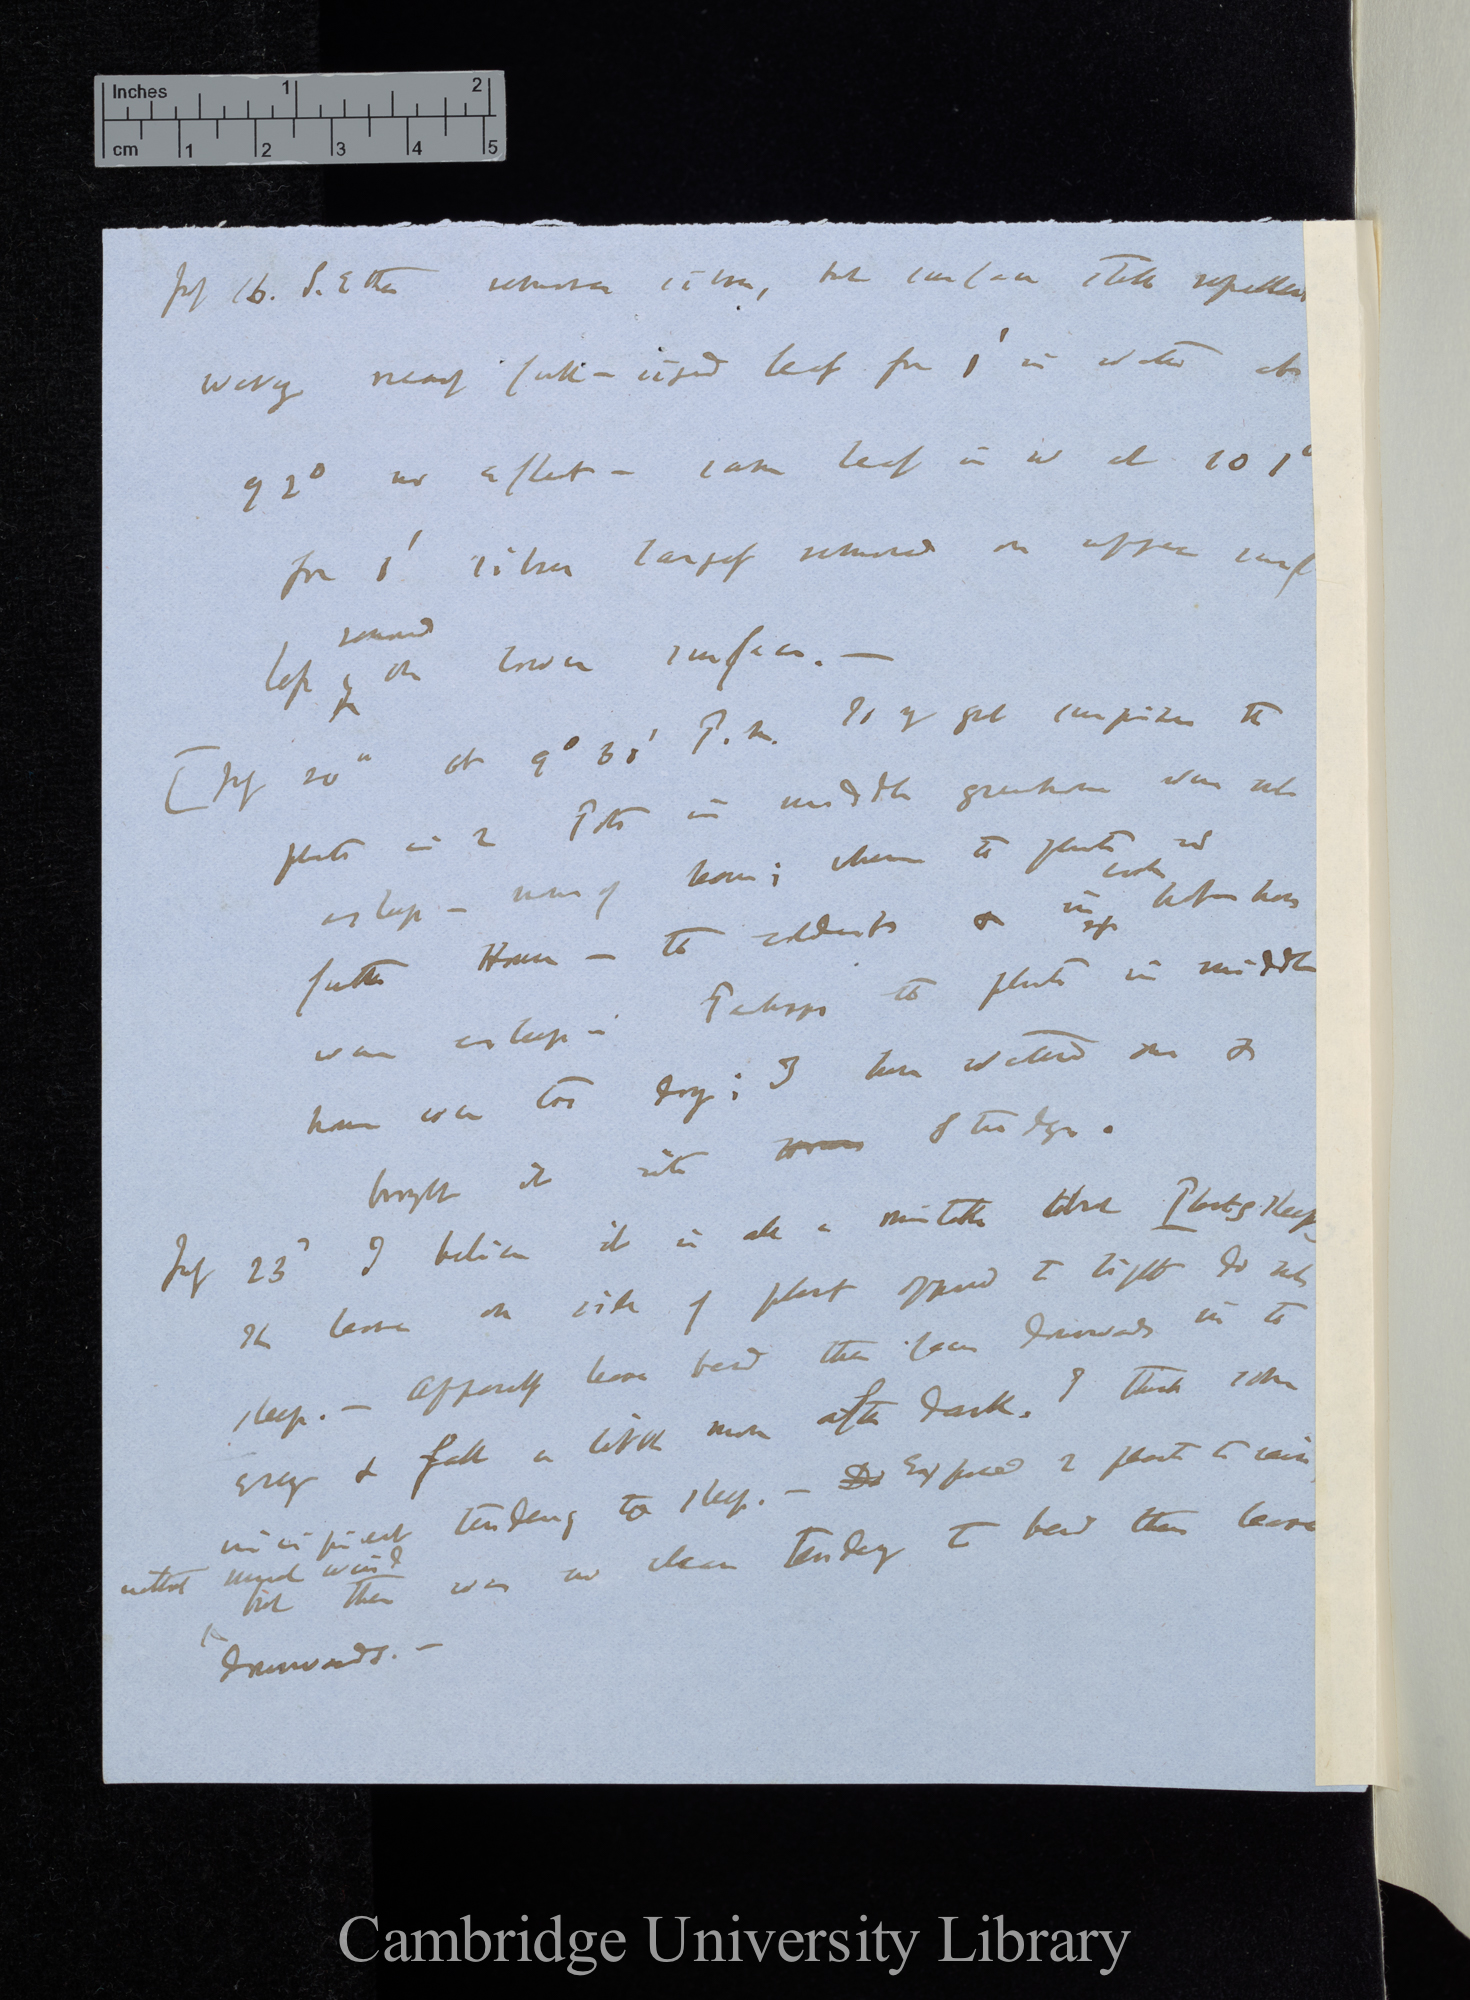 Inches 1 2
cm 1 2 3 4 5
July 16. S. Ether removes silver, but surface still repellent
waving nearly full-sized leaf for 1' in water at
92° no effect — same leaf in w at 101°
for 1' silver largely removed on upper surf
less removed on lower surface. —
[July 20th at 9° 30' P.m. to my great surprise the
plants in 2 Pots in middle greenhouse were not
asleep — none of leaves; whereas the plants
further House — the & in hot house
were asleep — Perhaps the plants in middle
house were too dry; I have watered one &
brought it into House Study.
July 23d I believe it is all a mistake about Plants sleep
The leaves on side of plant opposed to light do not
sleep. — Apparently leaves bend their faces downwards in the
& fall a little more after dark. I think some
incipient tendency to sleep. — Do Exposed 2 plants to rain
without much wind
but there was no clear tendency to bend their leaves
downwards. —
Cambridge University Library